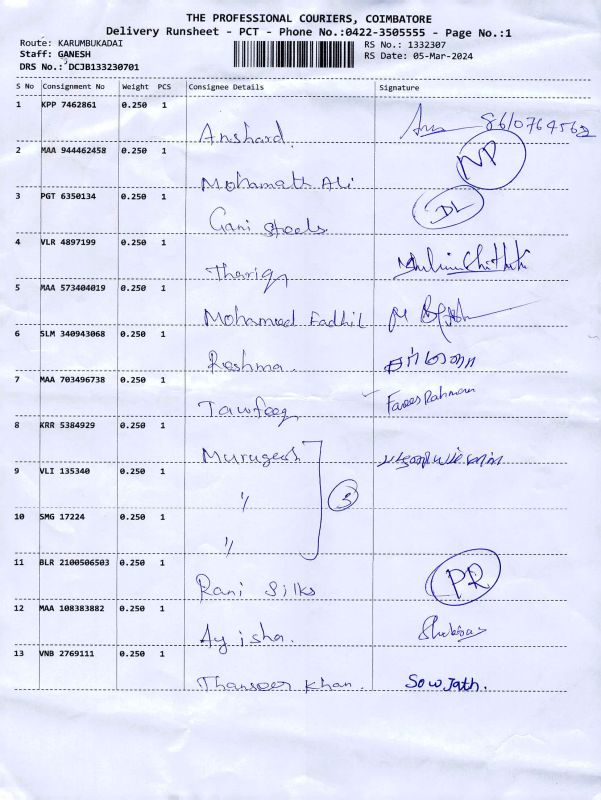 THE PROFESSIONAL COURIERS, COIMBATORE
Delivery Runsheet - PCT - Phone No.:0422-3505555 - Page No.:1
Route: KARUMBUKADAI RS No.: 1332307
Staff: GANESH RS Date: 05-Mar-2024
DRS No.: DCJB133230701
S No Consignment No Weight PCS Consignee Details Signature
1 KPP 7462861 0.250 1
Anshard 8610764562
2 MAA 944462458 0.250 1 NP
Mohamath Ali
3 PGT 6350134 0.250 1 DL
Gani Steels
4 VLR 4897199 0.250 1
Thariq
5 MAA 573404019 0.250 1
Mohamed Fadhil
6 SLM 340943068 0.250 1
Reshma.
7 MAA 703496738 0.250 1
Tawfeeq Farees Rahman
8 KRR 5384929 0.250 1
Murugesh
9 VLI 135340 0.250 1
〃 3
10 SMG 17224 0.250 1
〃
11 BLR 2100506503 0.250 1 PR
Rani Silks
12 MAA 108383882 0.250 1
Ayisha.
13 VNB 2769111 0.250 1
Thanseer Khan. Sowjath.